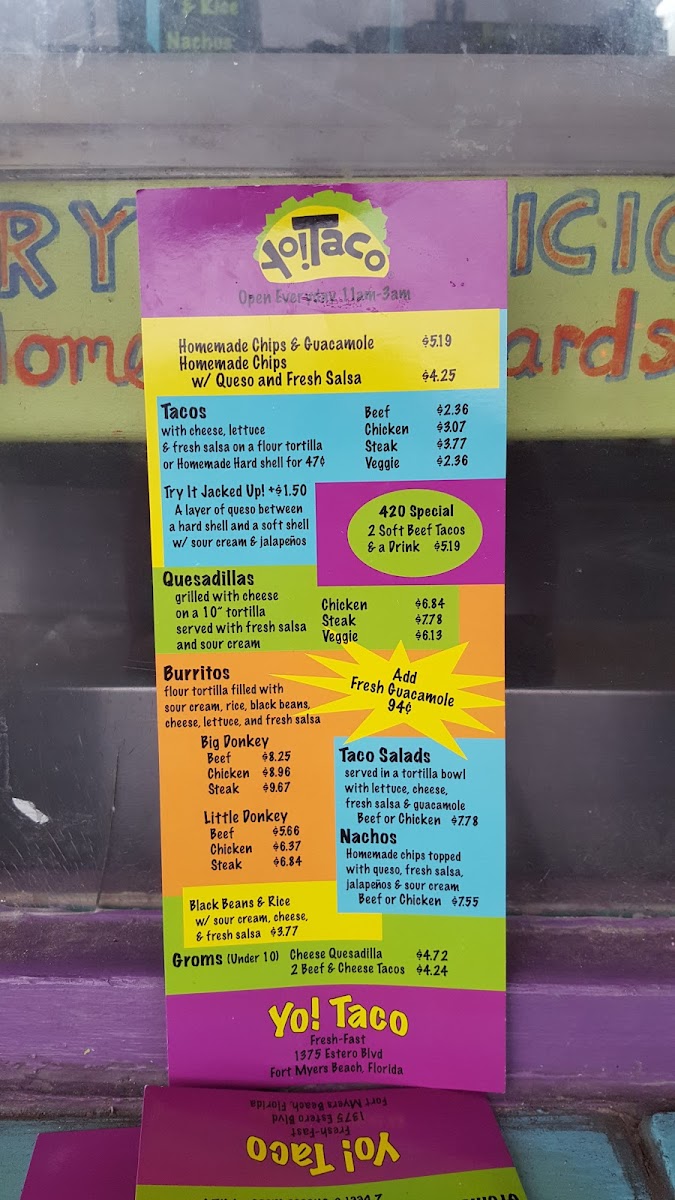 & Rice
Nachos
RY
ICIO
Home
ards
Yo! Taco
Open Everyday 11am-3am
Homemade Chips & Guacamole $5.19
Homemade Chips
w/ Queso and Fresh Salsa $4.25
Tacos
with cheese, lettuce
& fresh salsa on a flour tortilla
or Homemade Hard shell for 47¢
Beef $2.36
Chicken $3.07
Steak $3.77
Veggie $2.36
Try It Jacked Up! +$1.50
A layer of queso between
a hard shell and a soft shell
w/ sour cream & jalapeños
420 Special
2 Soft Beef Tacos
& a Drink $5.19
Quesadillas
grilled with cheese
on a 10" tortilla
served with fresh salsa
and sour cream
Chicken $6.84
Steak $7.78
Veggie $6.13
Burritos
flour tortilla filled with
sour cream, rice, black beans,
cheese, lettuce, and fresh salsa
Add
Fresh Guacamole
94¢
Big Donkey
Beef $8.25
Chicken $8.96
Steak $9.67
Little Donkey
Beef $5.66
Chicken $6.37
Steak $6.84
Taco Salads
served in a tortilla bowl
with lettuce, cheese,
fresh salsa & guacamole
Beef or Chicken $7.78
Nachos
Homemade chips topped
with queso, fresh salsa,
jalapeños & sour cream
Beef or Chicken $7.55
Black Beans & Rice
w/ sour cream, cheese,
& fresh salsa $3.77
Groms (Under 10) Cheese Quesadilla $4.72
2 Beef & Cheese Tacos $4.24
Yo! Taco
Fresh-Fast
1375 Estero Blvd
Fort Myers Beach, Florida
Fort Myers Beach, Florida
1375 Estero Blvd
Fresh-Fast
Yo! Taco